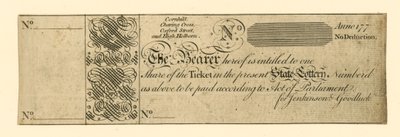 No
Cornhill,
Charing Cross,
Oxford Street,
and High Holborn.
No
Anno 177
No Deduction.
The Bearer hereof is intitled to one
Share of the Ticket in the present State Lottery. Numberd
as above to be paid according to Act of Parliament
for Jenkinson & Goodluck
No
No